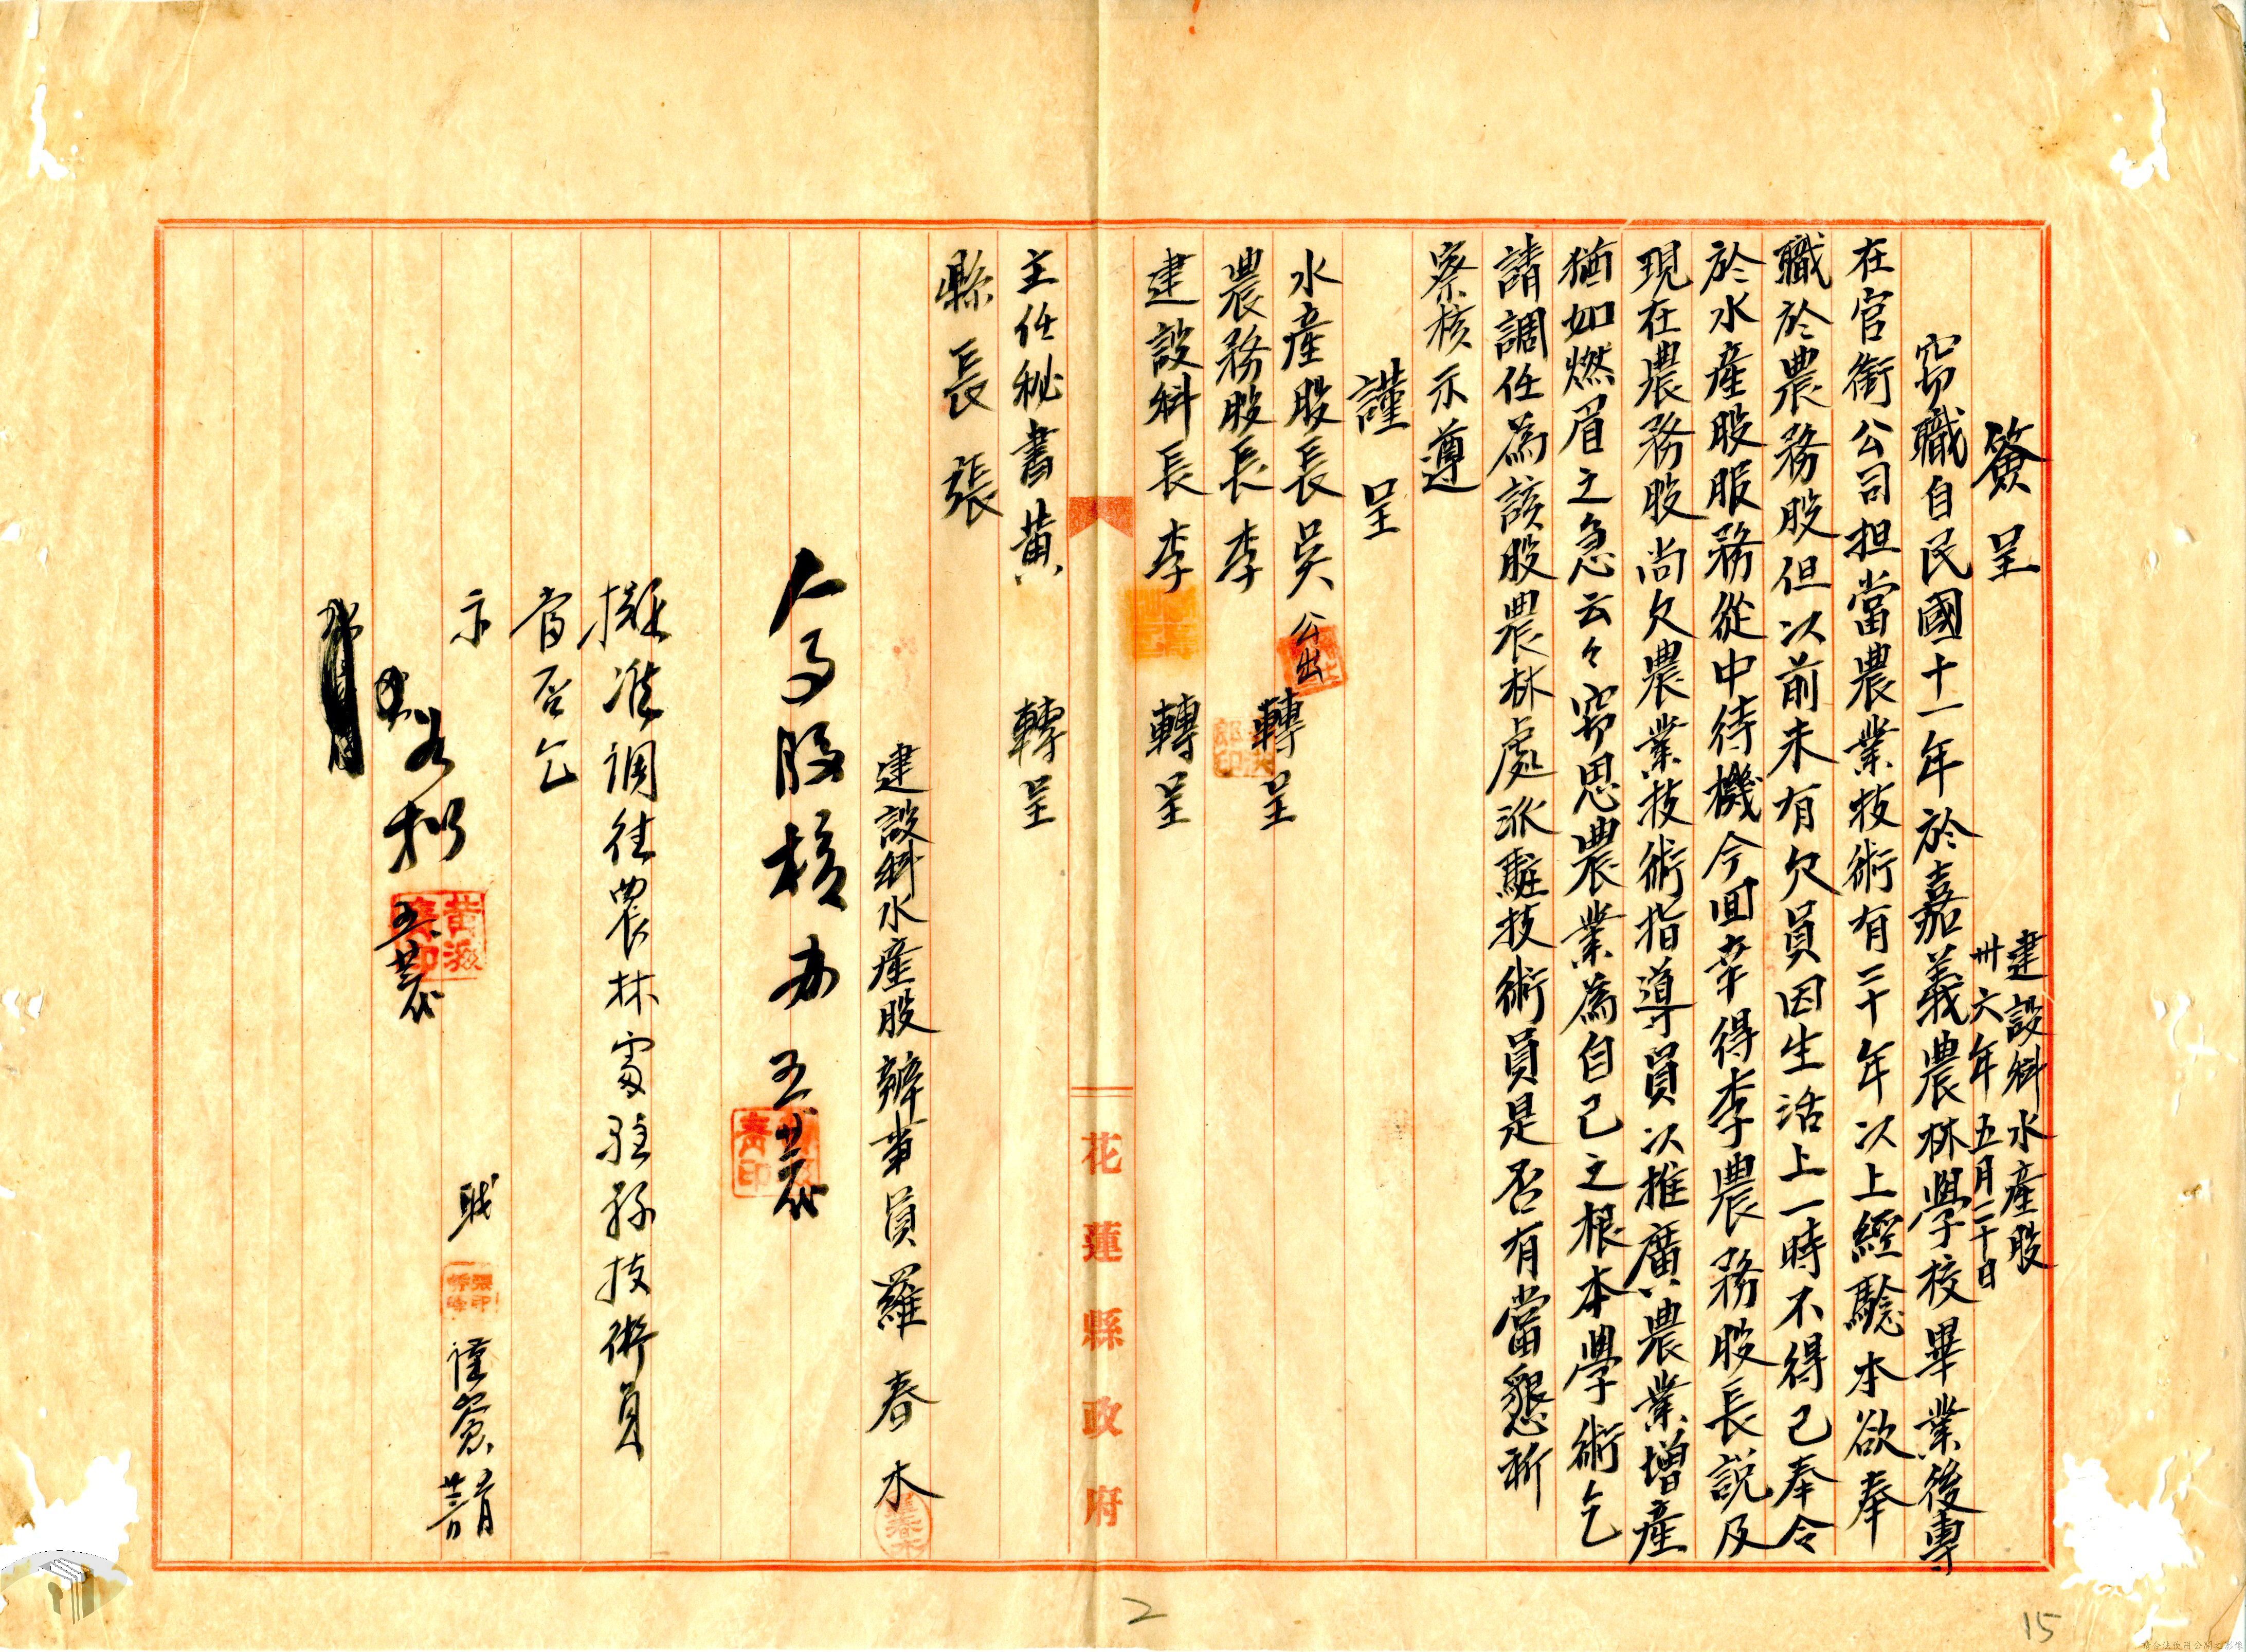 簽呈
建設科水產股
卅六年五月二十日
窃職自民國十一年於嘉義農林學校畢業後專
在官衙公司担當農業技術有二十年以上經驗本欲奉
職於農務股但以前未有欠員因生活上一時不得已奉令
於水產股服務從中待機今回幸得李農務股長説及
現在農務股尚欠農業技術指導員以推廣農業增產
猶如燃眉之急云々窃思農業為自己之根本學術乞
請調任為該股農林處派駐技術員是否有當懇祈
察核示遵
謹呈
水產股長吳 公出
農務股長李 轉呈
建設科長李 轉呈
主任秘書黄 轉呈
縣長張
建設科水產股辦事員羅春木
人事股核办
擬准調往農林處駐縣技術員
當否乞
示
職 謹簽
如拟
花蓮縣政府
2
15